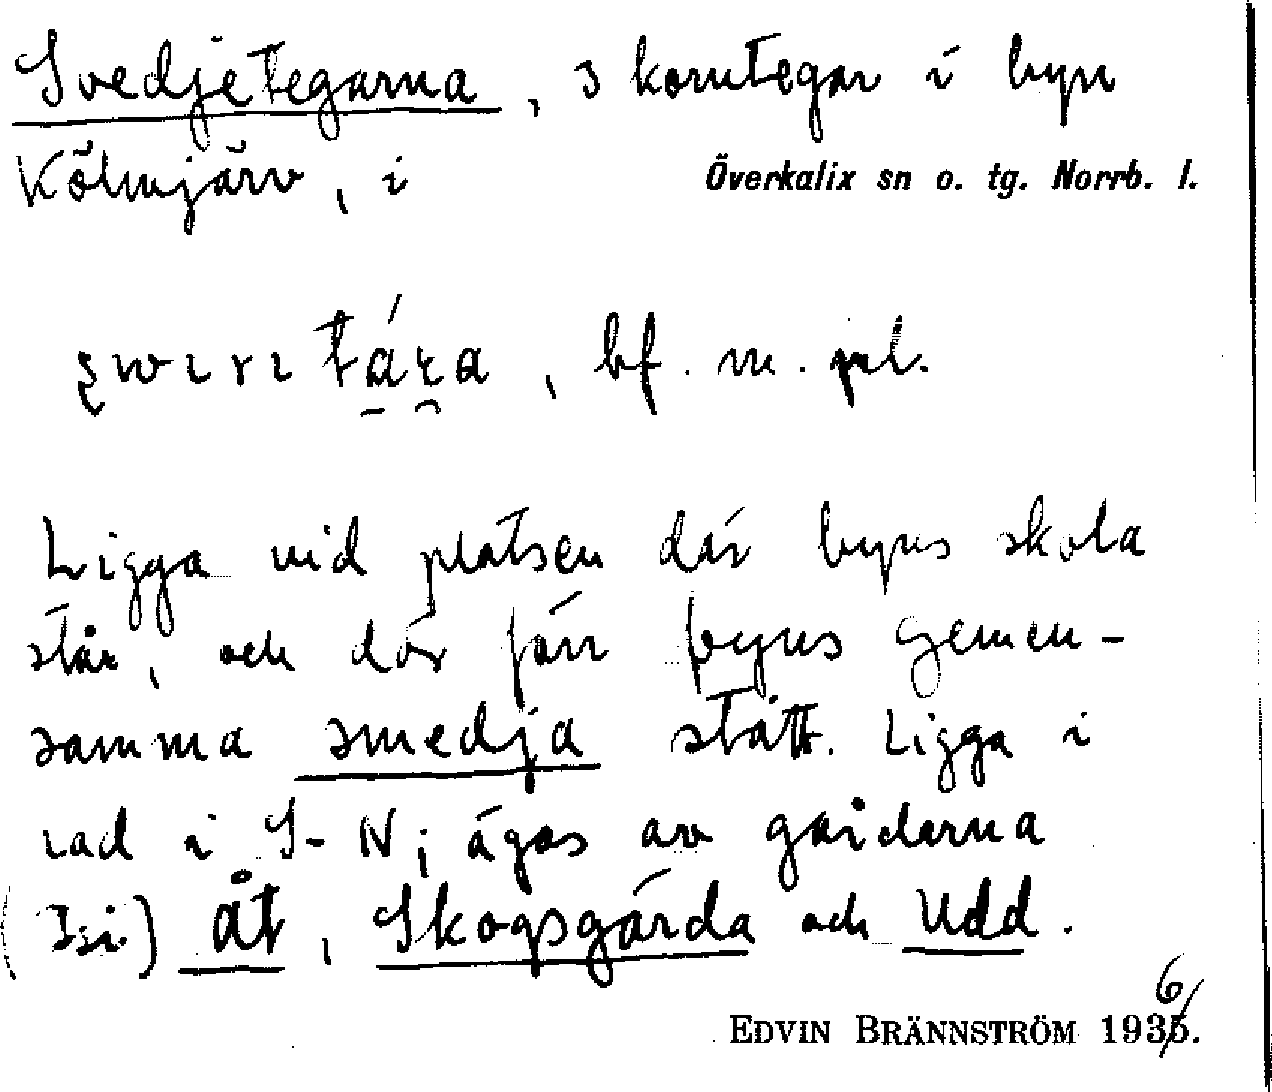 Svedjetegarna, 3 korntegar i byn
Kölmjärv, i Överkalix sn o. tg. Norrb. l.
bf. m. pl.
Ligga vid platsen där byns skola
står, och där förr byns gemen-
samma smedja stått. Ligga i
rad i S-N; ägas av gårdarna
åt, Skogsgårda och Udd.
EDVIN BRÄNNSTRÖM 1936.